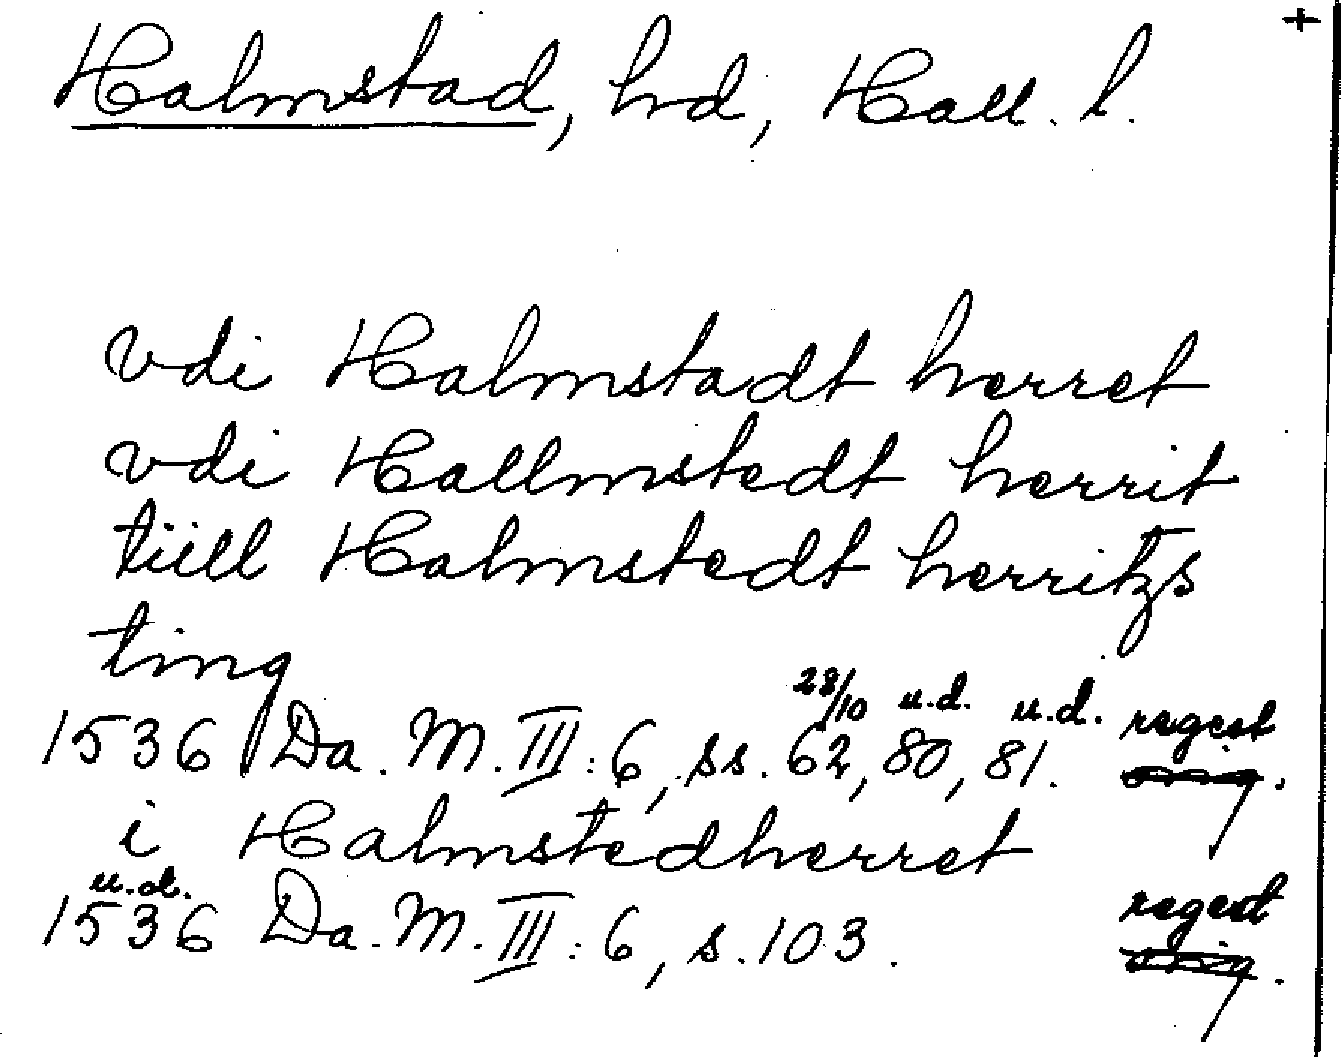 +
Halmstad, hd, Hall. l.
vdi Halmstadt herret
vdi Hallmstedt herrit
tiill Halmstedt herritzs
ting
28/10 u.d. u.d. regest
1536 Da. M. III: 6, ss. 62, 80, 81. orig.
i Halmstedherret
u.d. regest
1536 Da. M. III: 6, s. 103. orig.